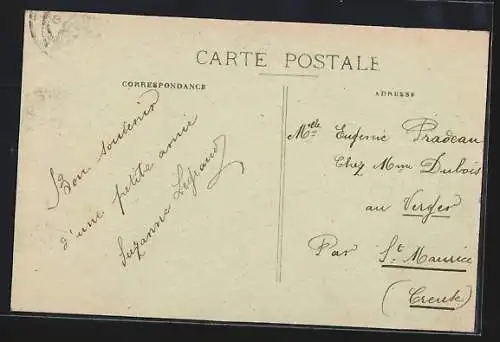 CARTE POSTALE
CORRESPONDANCE
Bon souvenir
d'une petite amie
Suzanne Legrand
ADRESSE
Melle Eugenie Pradeau
Chez Mme Dubois
au Verger
Par St Maurice
(Creuse)